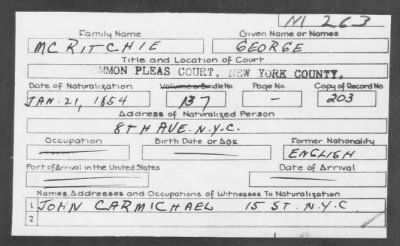 M 263
Family Name Given Name or Names
MC RITCHIE GEORGE
Title and Location of Court
COMMON PLEAS COURT, NEW YORK COUNTY.
Date of Naturalization Volume or Bundle No. Page No. Copy of Record No.
JAN. 21, 1854 137 - 203
Address of Naturalized Person
8TH AVE. N.Y.C.
Occupation Birth Date or Age Former Nationality
ENGLISH
Port of Arrival in the United States Date of Arrival
Names, Addresses and Occupations of Witnesses To Naturalization
1 JOHN CARMICHAEL 15 ST. N.Y.C.
2